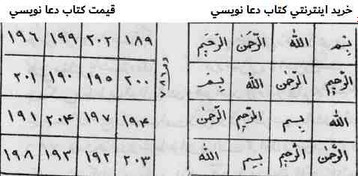 خريد اينترنتي كتاب دعا نويسي
قيمت كتاب دعا نويسي
بسم الله الرحمن الرحيم
الرحيم الرحمن الله بسم
الله بسم الرحيم الرحمن
الرحمن الرحيم بسم الله
۷۸۶
۱۸۹ ۲۰۲ ۱۹۹ ۱۹۶
۲۰۰ ۱۹۵ ۱۹۰ ۲۰۱
۱۹۴ ۱۹۷ ۲۰۴ ۱۹۱
۲۰۳ ۱۹۲ ۱۹۳ ۱۹۸